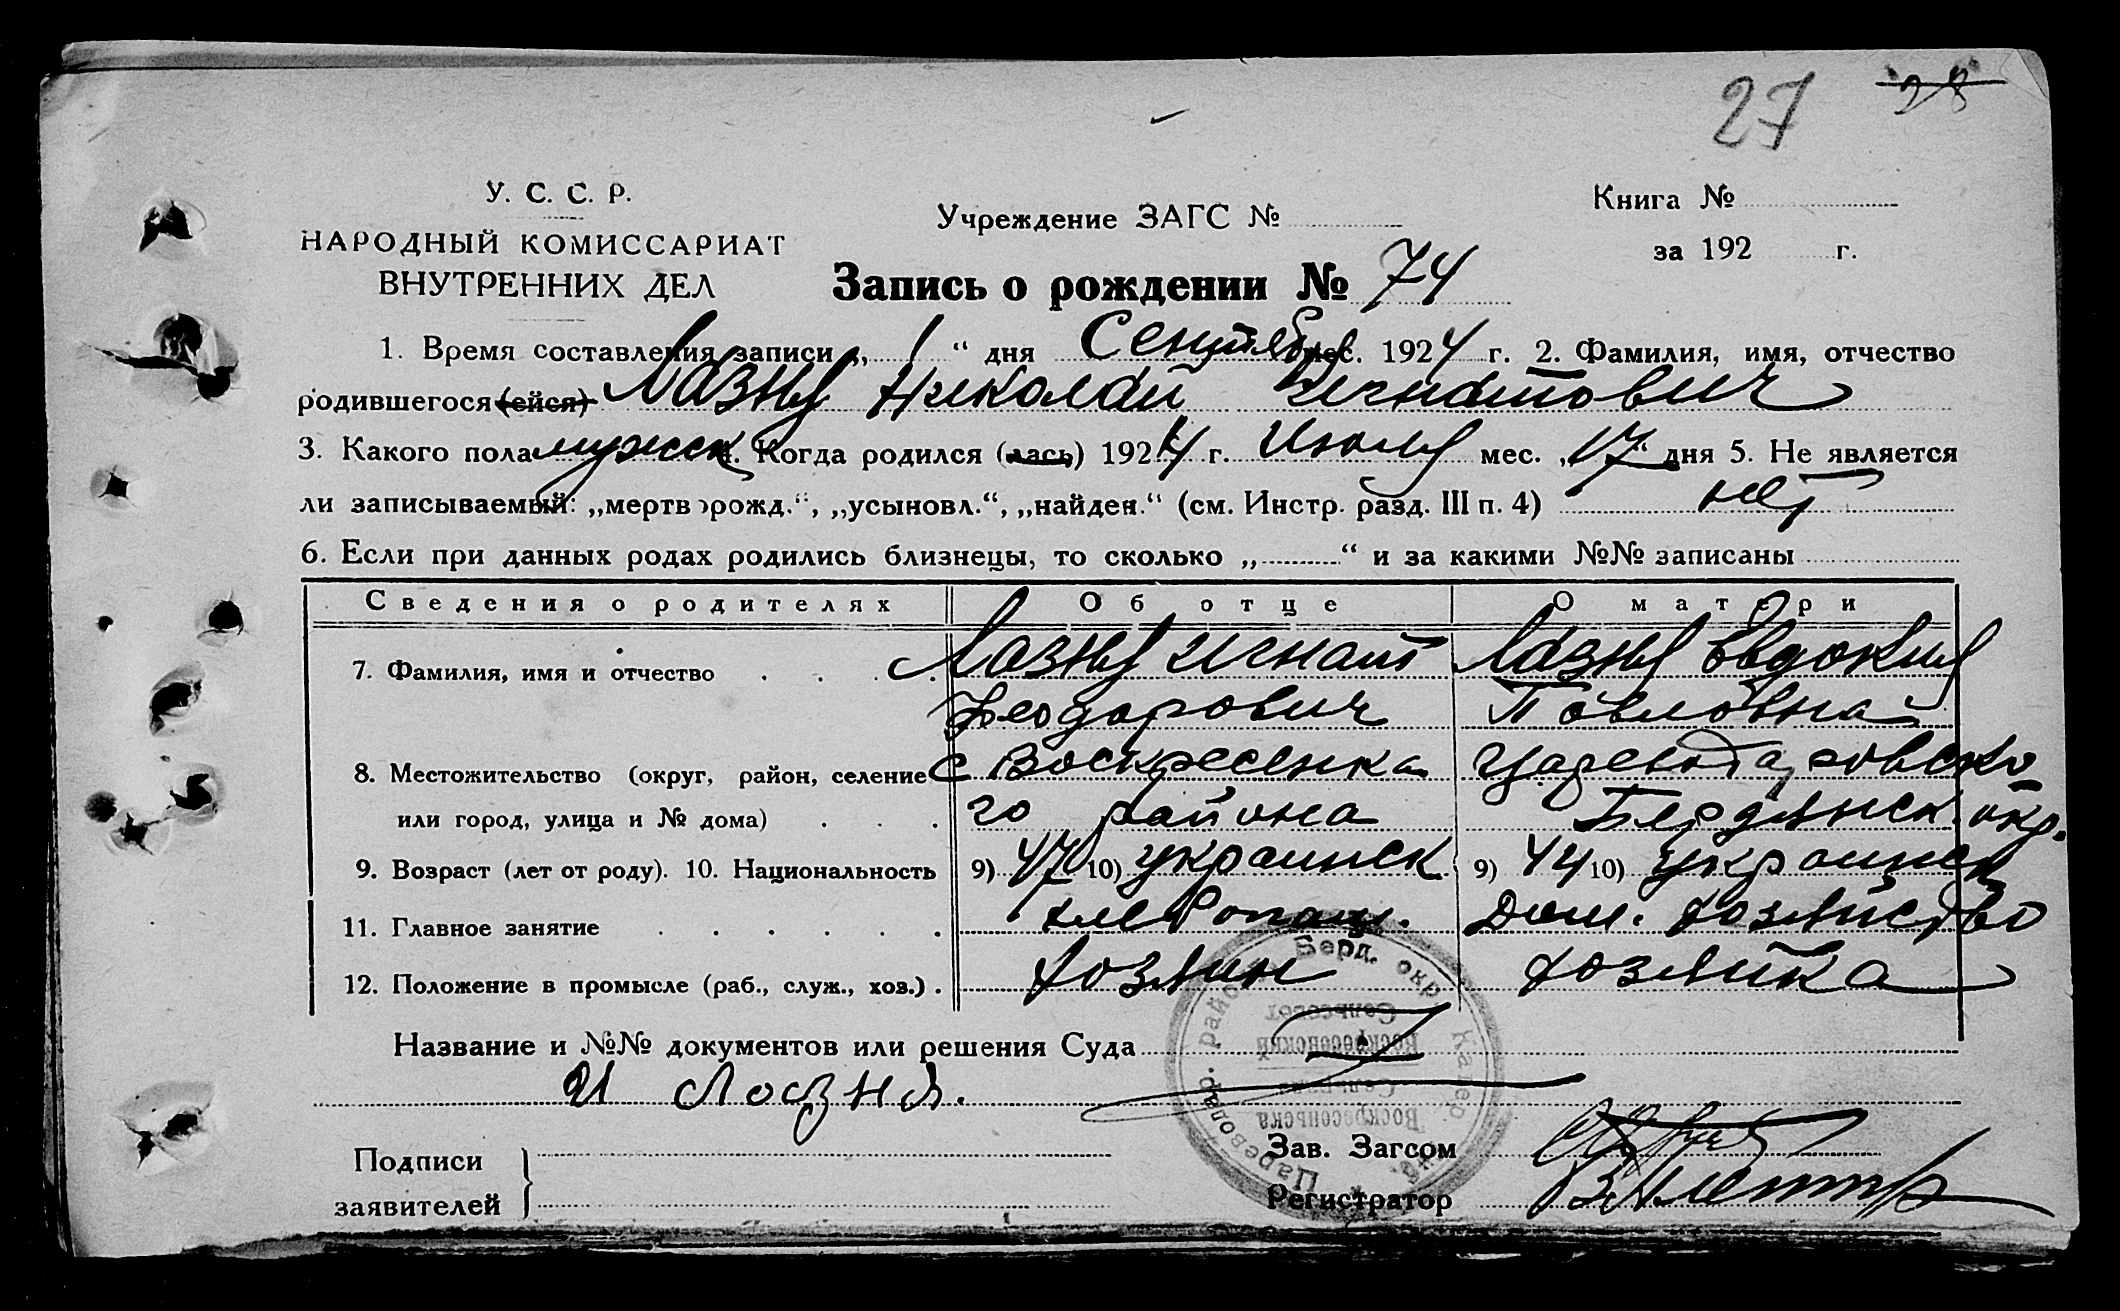 27 28
У. С. С. Р.
НАРОДНЫЙ КОМИССАРИАТ
ВНУТРЕННИХ ДЕЛ
Учреждение ЗАГС №
Книга №
за 192 г.
Запись о рождении № 74
1. Время составления записи „ 1 “ дня Сентября мес. 1924 г. 2. Фамилия, имя, отчество
родившегося (ейся) Лазня Николай Игнатович
3. Какого пола мужск 4. Когда родился (лась) 1924 г. Июля мес. „17“ дня 5. Не является
ли записываемый: „мертворожд.“, „усыновл.“, „найден.“ (см. Инстр. разд. III п. 4) нет
6. Если при данных родах родились близнецы, то сколько „ “ и за какими №№ записаны
Сведения о родителях Об отце О матери
7. Фамилия, имя и отчество Лазня Игнат Лазня Евдокия
Феодорович Павловна
8. Местожительство (округ, район, селение с Воскресенка Царевода ровско
или город, улица и № дома) го района Бердянск. окр.
9. Возраст (лет от роду). 10. Национальность 9) 47 10) украинск 9) 44 10) украинск
11. Главное занятие хлебопаш. Дом. хозяйство
12. Положение в промысле (раб., служ., хоз.) хозяин хозяйка
Название и №№ документов или решения Суда
И Лозня.
Берд. окр.
Цареводар. район
Сельсовет
Воскресенский
Воскресенська
Подписи
заявителей
Зав. Загсом
Регистратор